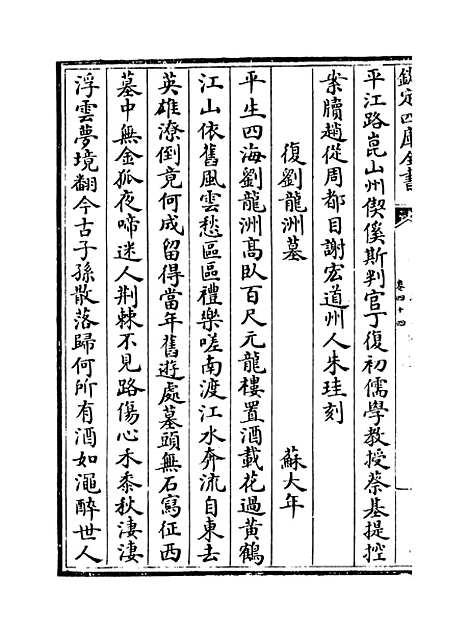 欽定四庫全書
卷四十四
平江路崑山州偰傒斯判官丁復初儒學教授蔡基提控
案牘趙從周都目謝宏道州人朱珪刻
復劉龍洲墓 蘇大年
平生四海劉龍洲髙臥百尺元龍樓置酒載花過黄鶴
江山依舊風雲愁區區禮樂嗟南渡江水奔流自東去
英雄潦倒竟何成留得當年舊遊處墓頭無石寫征西
墓中無金狐夜啼迷人荆棘不見路傷心禾黍秋淒淒
浮雲夢境翻今古子孫散落歸何所有酒如澠醉世人